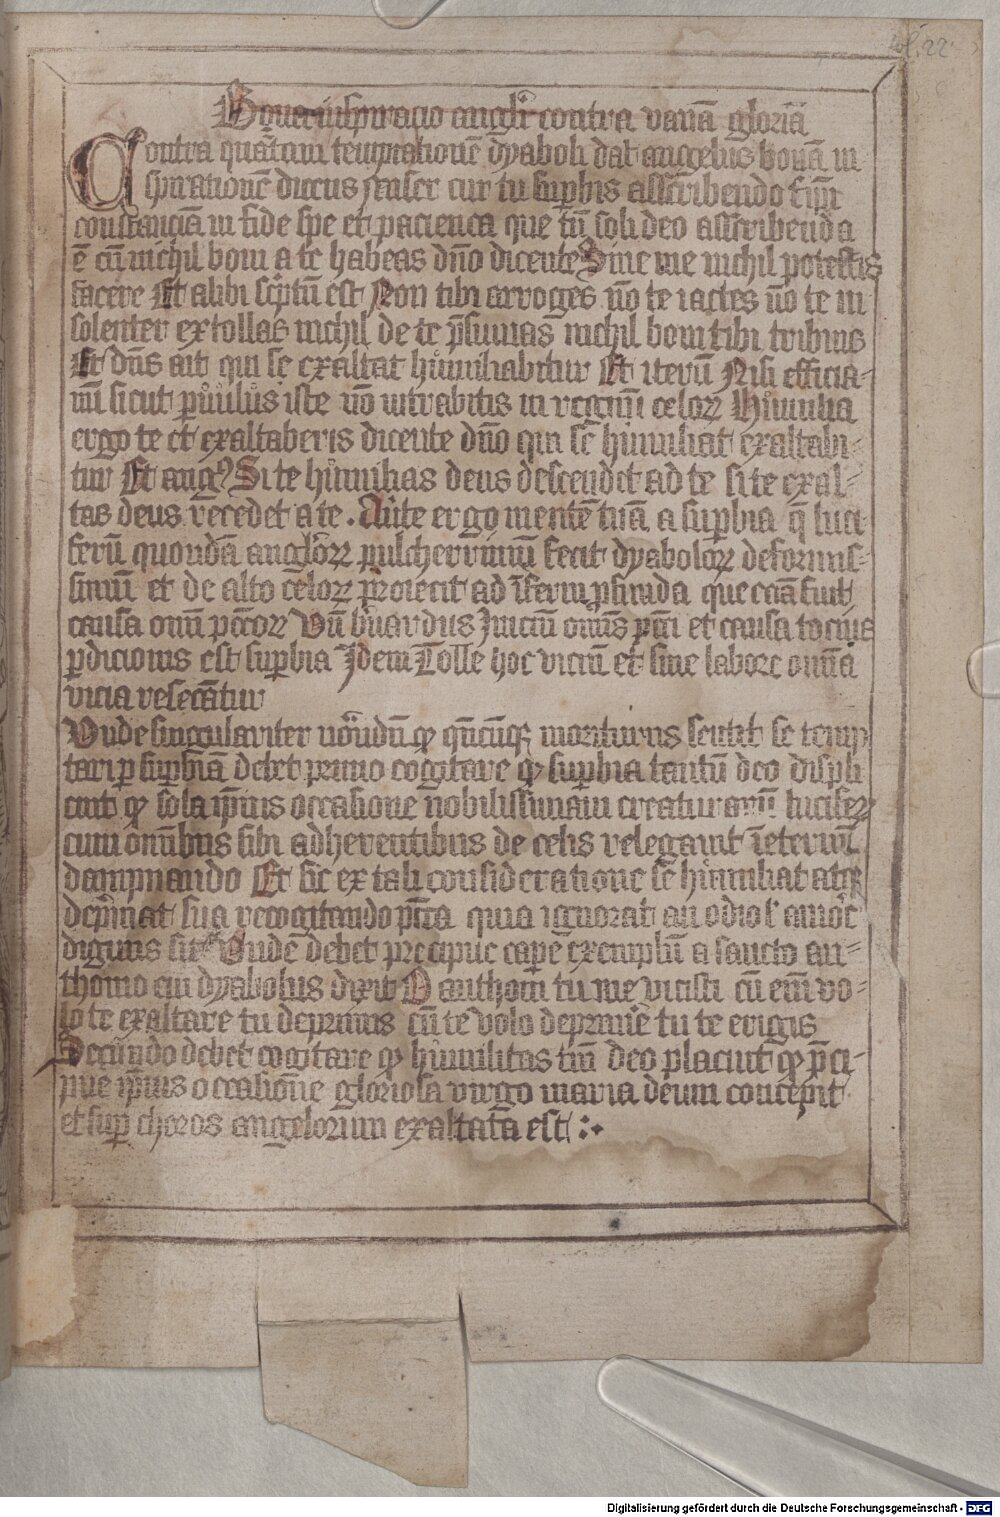 bl. 22
Bona inspiracio angeli contra vanā gloriā
Contra quātam temptationē dyaboli dat angelus bonā in
spirationē dicens Miser cur tu suꝑbis asscribendo tibi
constanciā in fide spe et paciencia que tm̄ soli deo asscribenda
ē cū nichil boni a te habeas dn̄o dicente Sine me nichil potestis
facere Et alibi scptū est Non tibi arroges nō te iactes nō te in
solenter extollas nichil de te p̄sumas nichil boni tibi tribuas
Et dn̄s ait qui se exaltat humiliabitur Et iterū Nisi efficia-
mī sicut paruulus iste nō intrabitis in regnū celoꝝ Humilia
ergo te et exaltaberis dicente dn̄o qui se humiliat exaltabi-
tur Et aug⁹ Si te humilias deus descendit ad te si te exal-
tas deus recedet a te. Aūte ergo mentē tuā a suꝑbia q̄ luci-
ferū quondā angloꝝ pulcherrimū fecit dyaboloꝝ deformis-
simū et de alto celoꝝ proiecit ad īferni ꝓfunda que eciā fuit
causa om̄ pctoꝝ Vn̄ b̄nardus Iniciū om̄is pcti et causa tocius
ꝑdicionis est suꝑbia Idem Tolle hoc viciū et sine labore omnia
vicia resecātur
Vnde singulariter notādū ꝙ qn̄cūqꝫ moriturus sentit se temp
tari ꝑ suꝑbiā debet primo cogitare ꝙ suꝑbia tantū deo displi
cuit ꝙ sola ipsius occasione nobilissimam creaturarū luciferꝝ
cum om̄ibus sibi adherentibus de celis relegauit ī eternū
dampnando Et sic ex tali consideratione se humiliat atqꝫ
depmat sua recogitando pctā quia ignorat an odio l' amore
dignus sit Vnde debet precipue capē exemplū a sancto an-
thonio cui dyabolus dixit O anthoni tu me vicisti cū enī vo-
lo te exaltare tu deprimis cū te volo deprimē tu te erigis
Secundo debet cogitare ꝙ humilitas tm̄ deo placuit ꝙ p̄ci-
pue ipsius occasione gloriosa virgo maria deum concepit
et suꝑ choros angelorum exaltata est :⁘
Digitalisierung gefördert durch die Deutsche Forschungsgemeinschaft - DFG